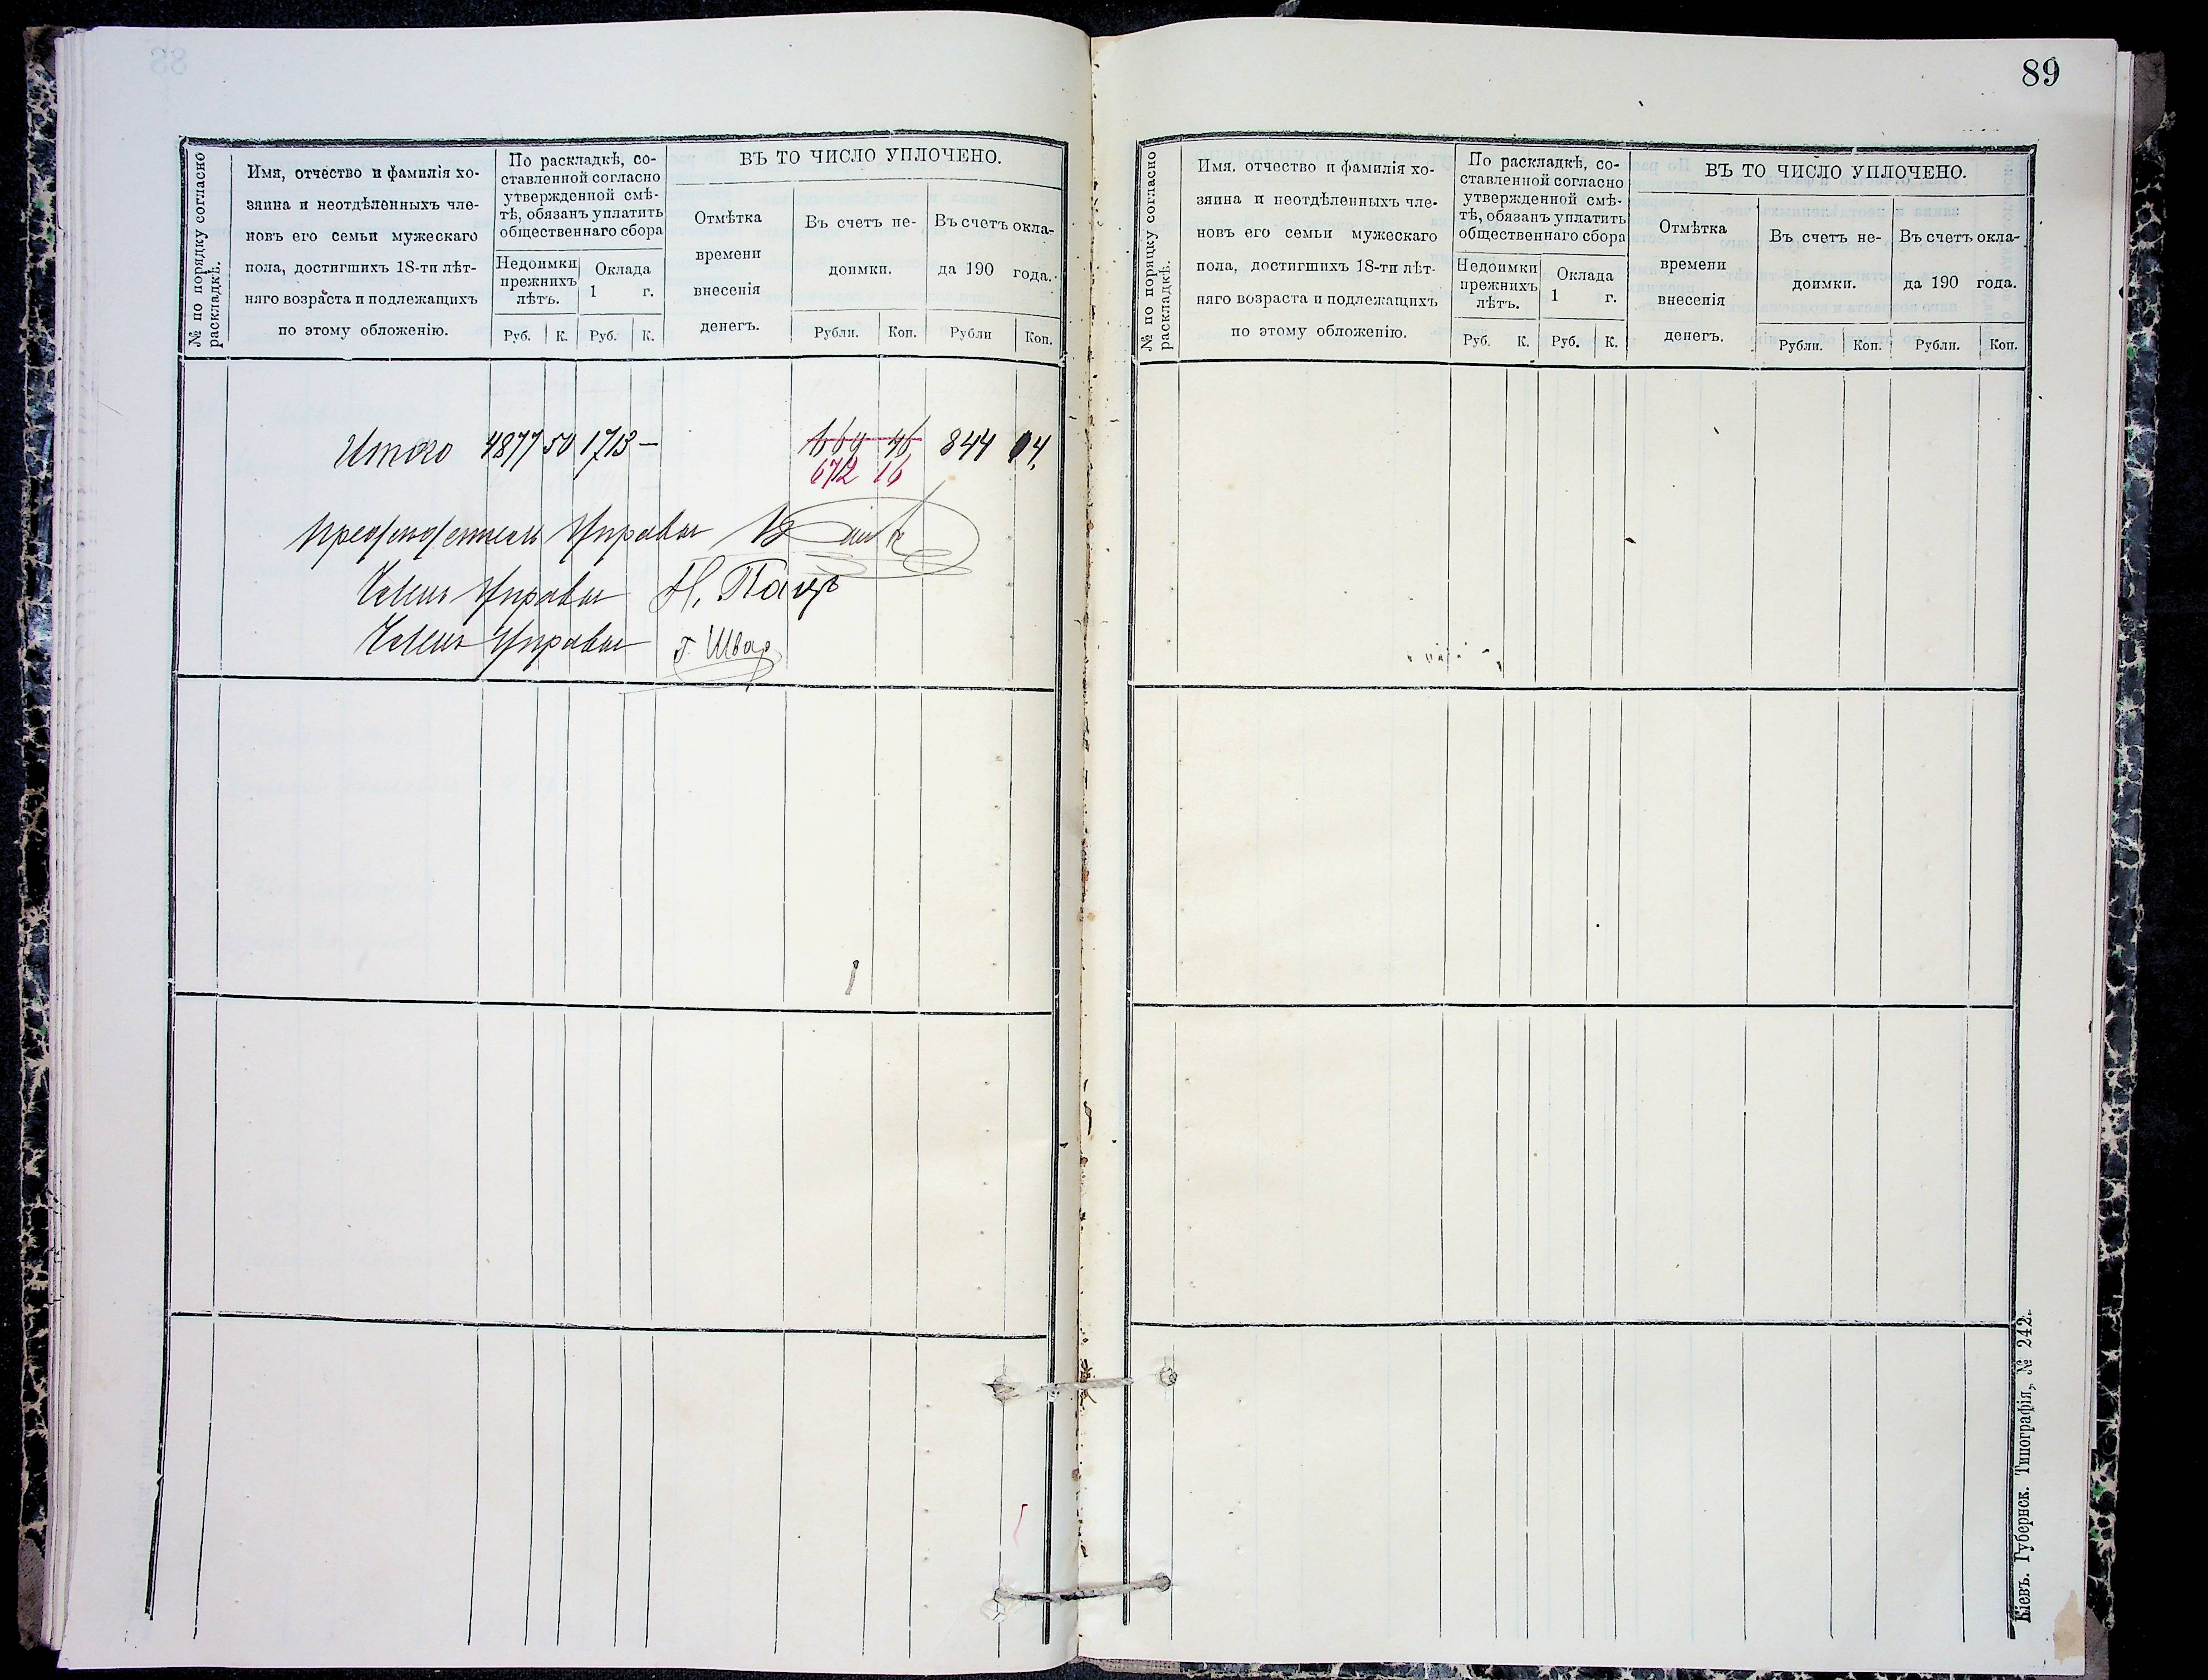 89
№ по порядку согласно
раскладкѣ.
Имя, отчество и фамилія хо-
зяина и неотдѣленныхъ чле-
новъ его семьи мужескаго
пола, достигшихъ 18-ти лѣт-
няго возраста и подлежащихъ
по этому обложенію.
По раскладкѣ, со-
ставленной согласно
утвержденной смѣ-
тѣ, обязанъ уплатить
общественнаго сбора
Недоимки
прежнихъ
лѣтъ.
Оклада
1 г.
Руб. К. Руб. К.
ВЪ ТО ЧИСЛО УПЛОЧЕНО.
Отмѣтка
времени
внесенія
денегъ.
Въ счетъ не-
доимки.
Въ счетъ окла-
да 190 года.
Рубли. Коп. Рубли Коп.
Итого 4877 50 1713 — 844 04
672 16
Предсѣдатель Управы
Членъ Управы Н.
Членъ Управы Г. Швар
№ по порядку согласно
раскладкѣ.
Имя, отчество и фамилія хо-
зяина и неотдѣленныхъ чле-
новъ его семьи мужескаго
пола, достигшихъ 18-ти лѣт-
няго возраста и подлежащихъ
по этому обложенію.
По раскладкѣ, со-
ставленной согласно
утвержденной смѣ-
тѣ, обязанъ уплатить
общественнаго сбора
Недоимки
прежнихъ
лѣтъ.
Оклада
1 г.
Руб. К. Руб. К.
ВЪ ТО ЧИСЛО УПЛОЧЕНО.
Отмѣтка
времени
внесенія
денегъ.
Въ счетъ не-
доимки.
Въ счетъ окла-
да 190 года.
Рубли. Коп. Рубли. Коп.
Кіевъ. Губернск. Типографія, № 242.